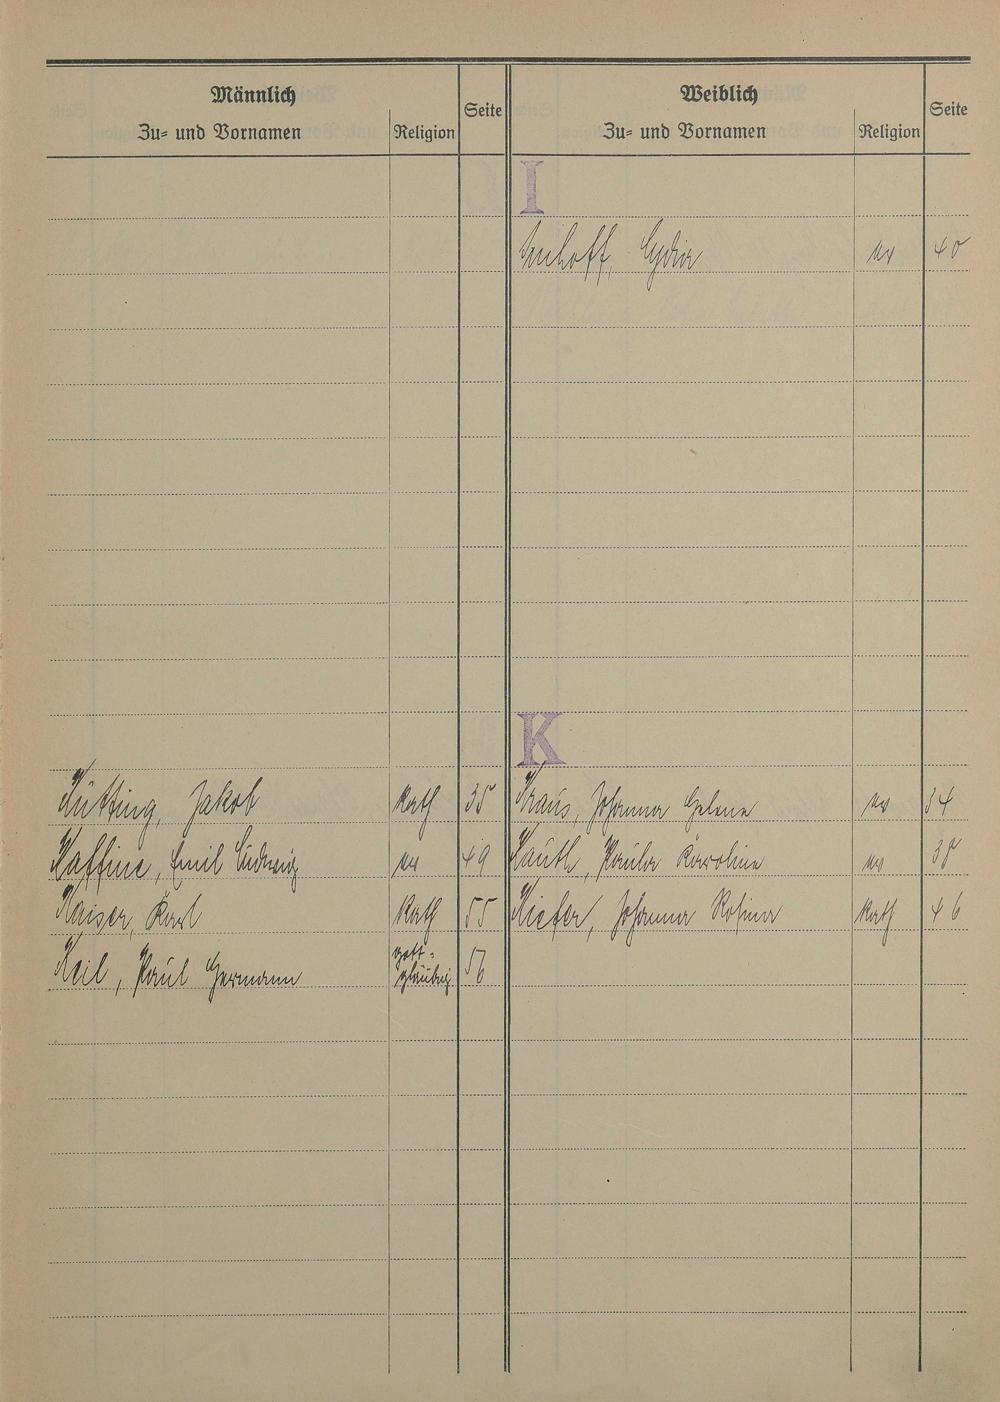 Männlich
Zu= und Vornamen Religion Seite
Weiblich
Zu= und Vornamen Religion Seite
I
Imhoff, Lydia ev 40
K
Hütting, Jakob kath 35 Kraus, Johanna Helene ev 34
Kaffine, Emil Ludwig ev 49 Kauth, Paula Karoline ev 38
Kaiser, Karl kath 55 Kiefer, Johanna Rosina kath 46
Keil, Paul Hermann gott=
gläubig 56